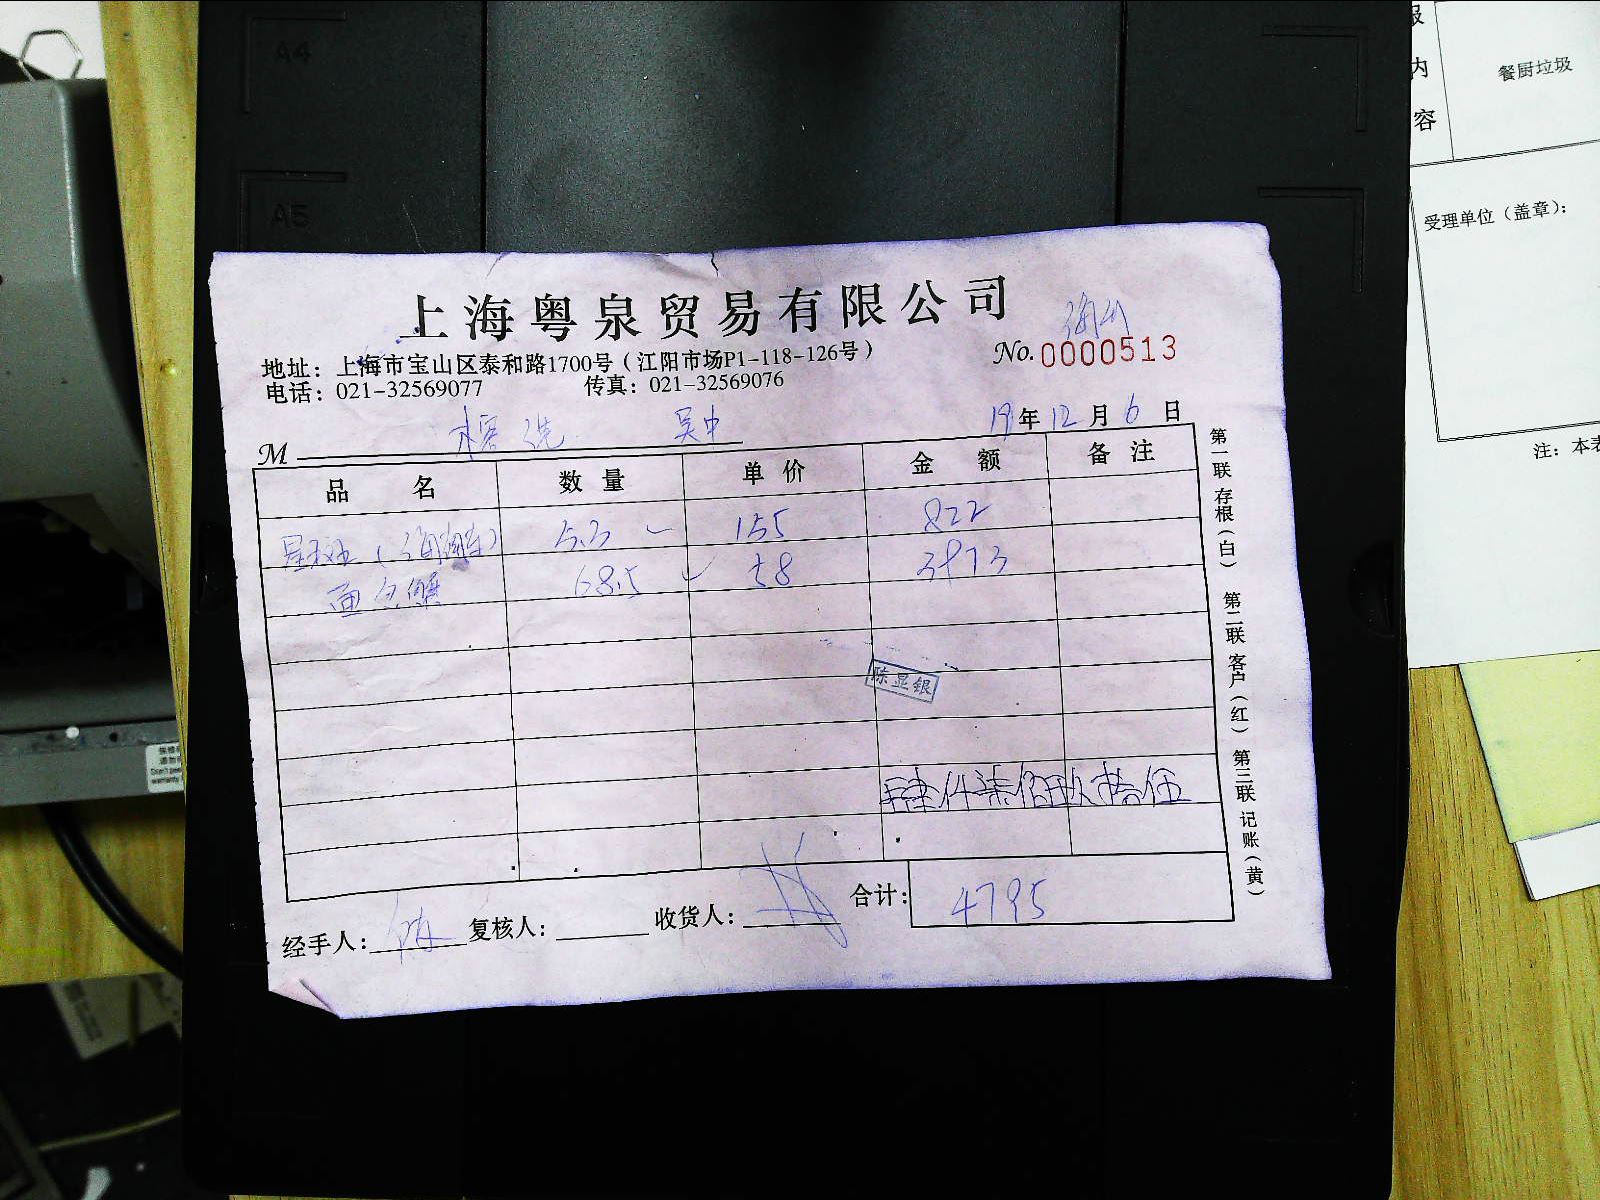 A4
A5
上海粤泉贸易有限公司
地址：上海市宝山区泰和路1700号（江阳市场P1-118-126号）
No.0000513
电话：021-32569077 传真：021-32569076
19年12月6日
M 吴中
品名 数量 单价 金额 备注
5.3 155 822
面包蟹 68.5 58 3973
陈显银
肆仟柒佰玖拾伍
合计：4795
经手人： 复核人： 收货人：
第一联 存根（白） 第二联 客户（红） 第三联 记账（黄）
内
容
餐厨垃圾
受理单位（盖章）：
注：本表